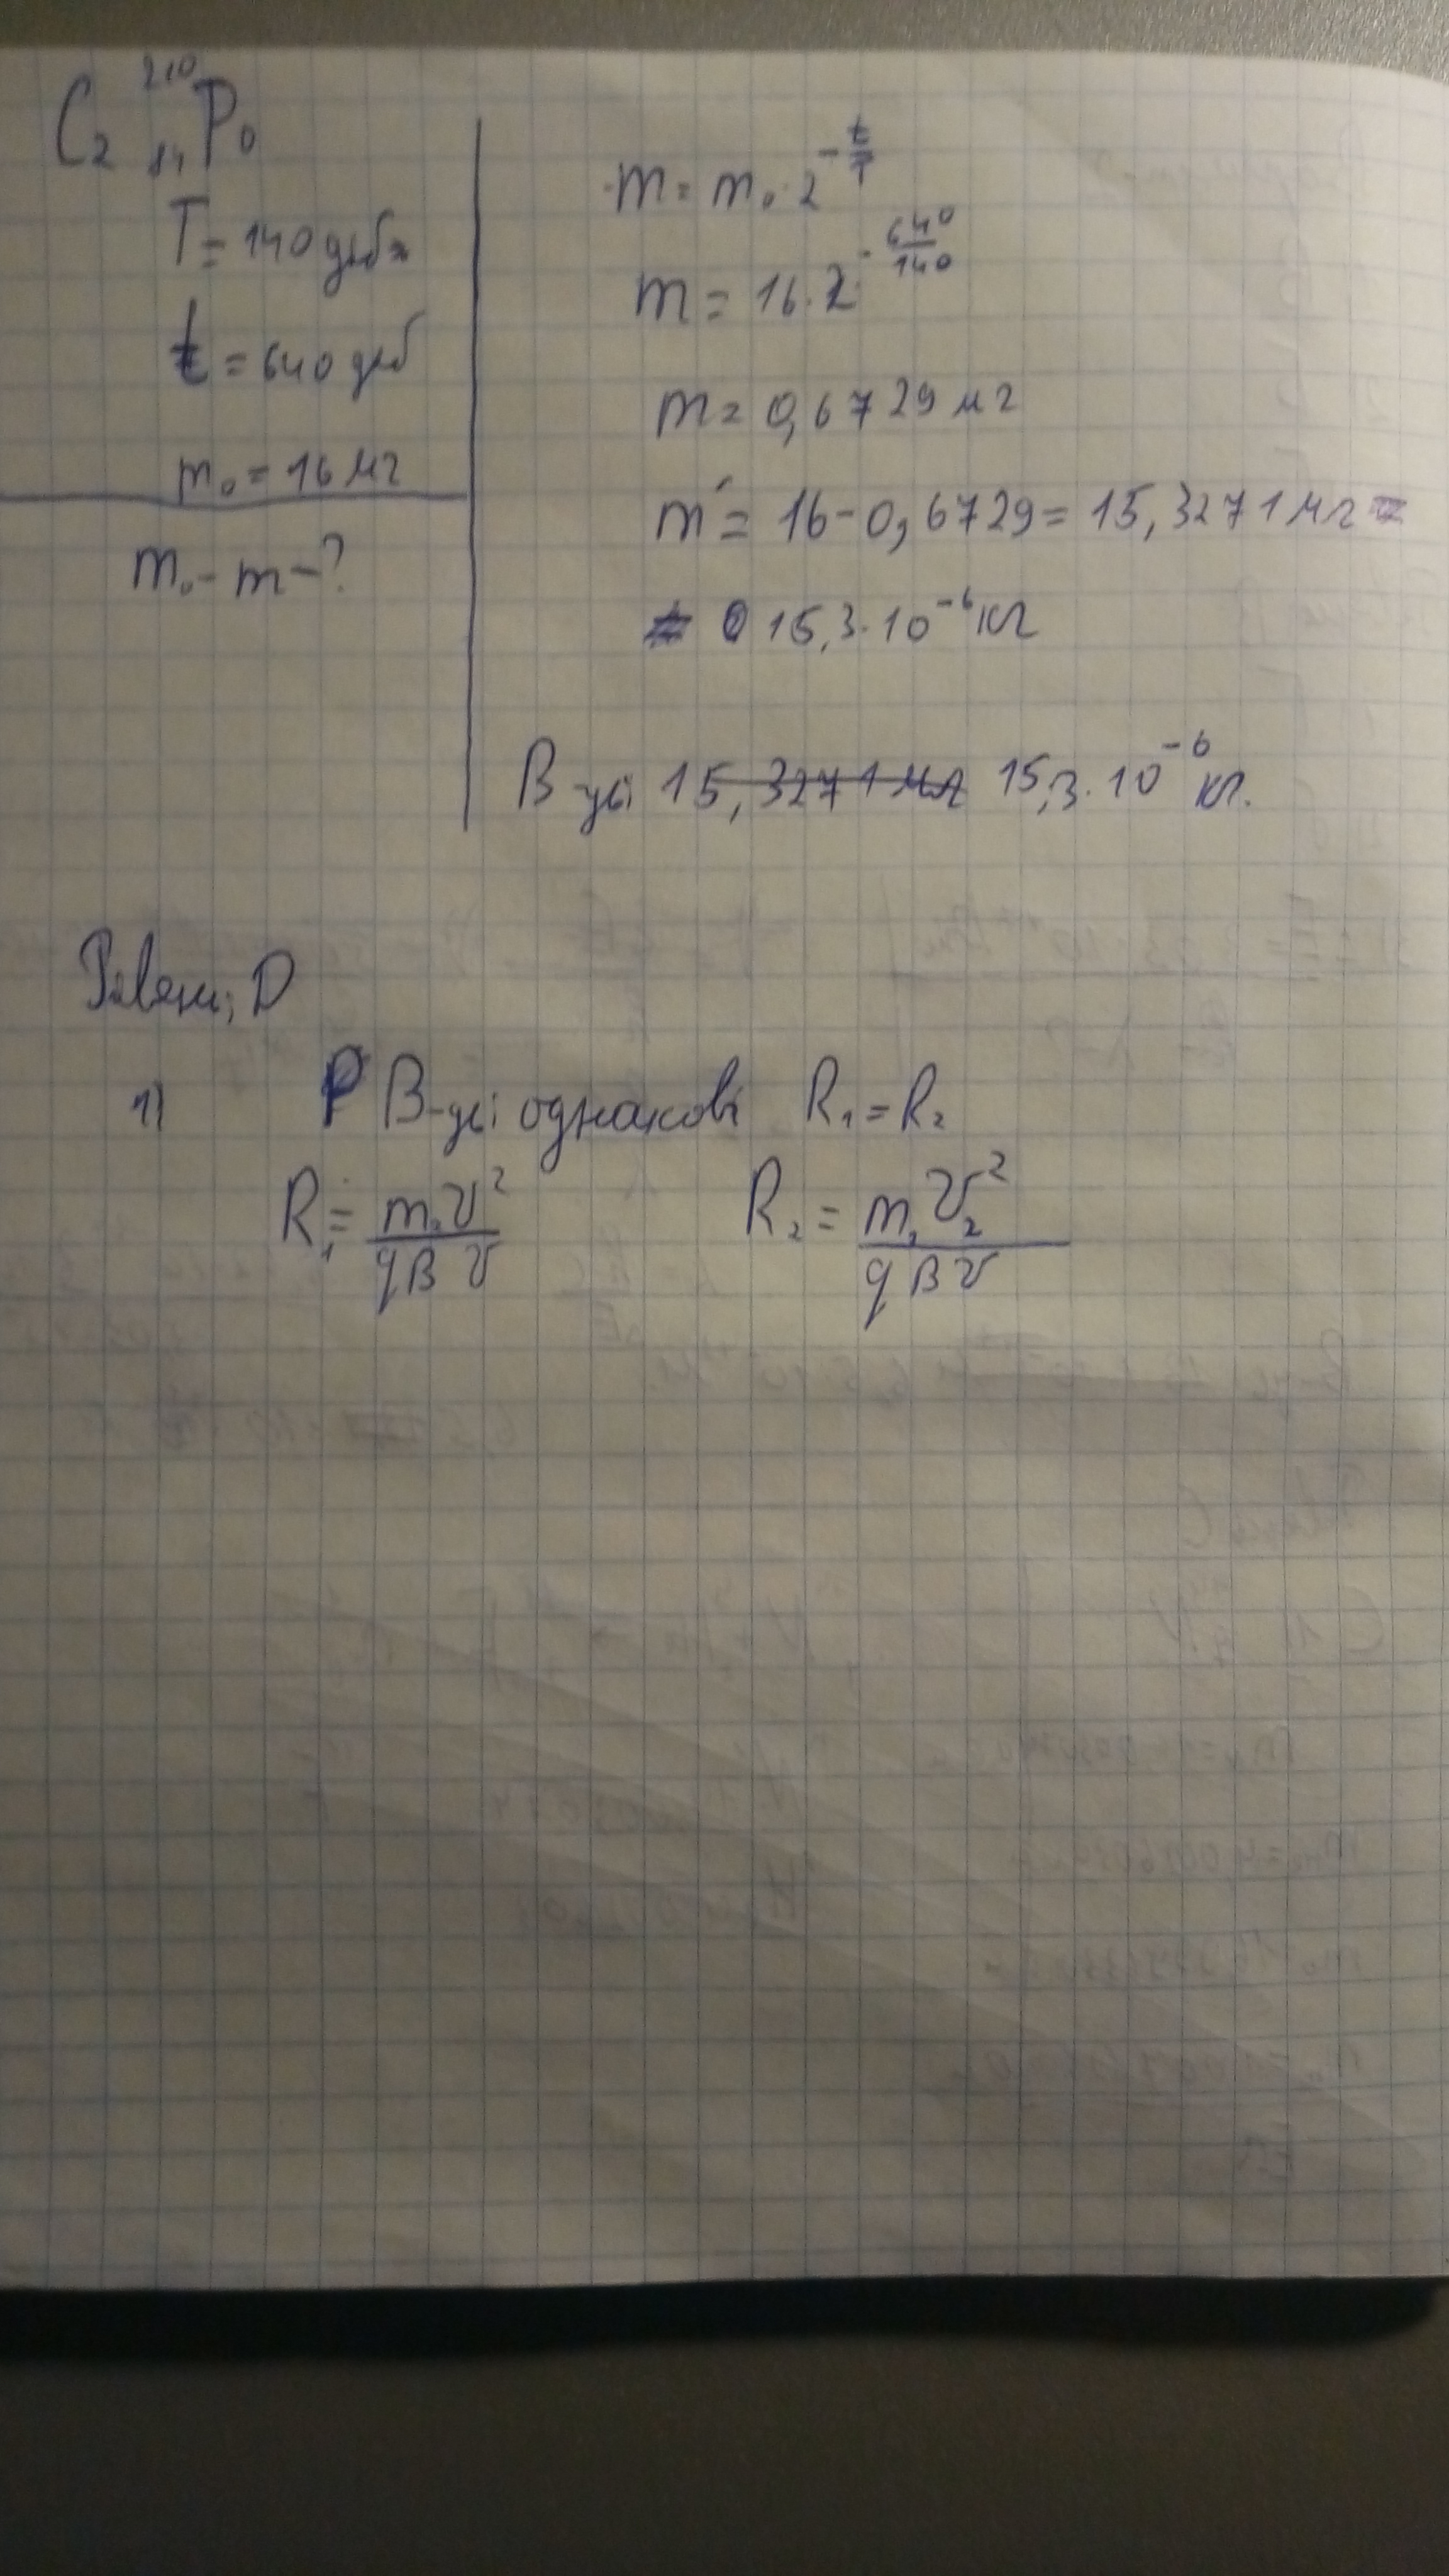 C2 ²¹⁰₈₄Po
T = 140 діб
t = 640 діб
m₀ = 16 мг
m₀ - m - ?
m = m₀ · 2^(-t/T)
m = 16 · 2^(-640/140)
m = 0,6729 мг
m' = 16 - 0,6729 = 15,3271 мг =
15,3 · 10⁻⁶ кг
В-дь: 15,3271 мг 15,3 · 10⁻⁶ кг.
Рівень D
1) В-дь: однакові R₁ = R₂
R₁ = m₁v²/qBv R₂ = m₂v₂²/qBv